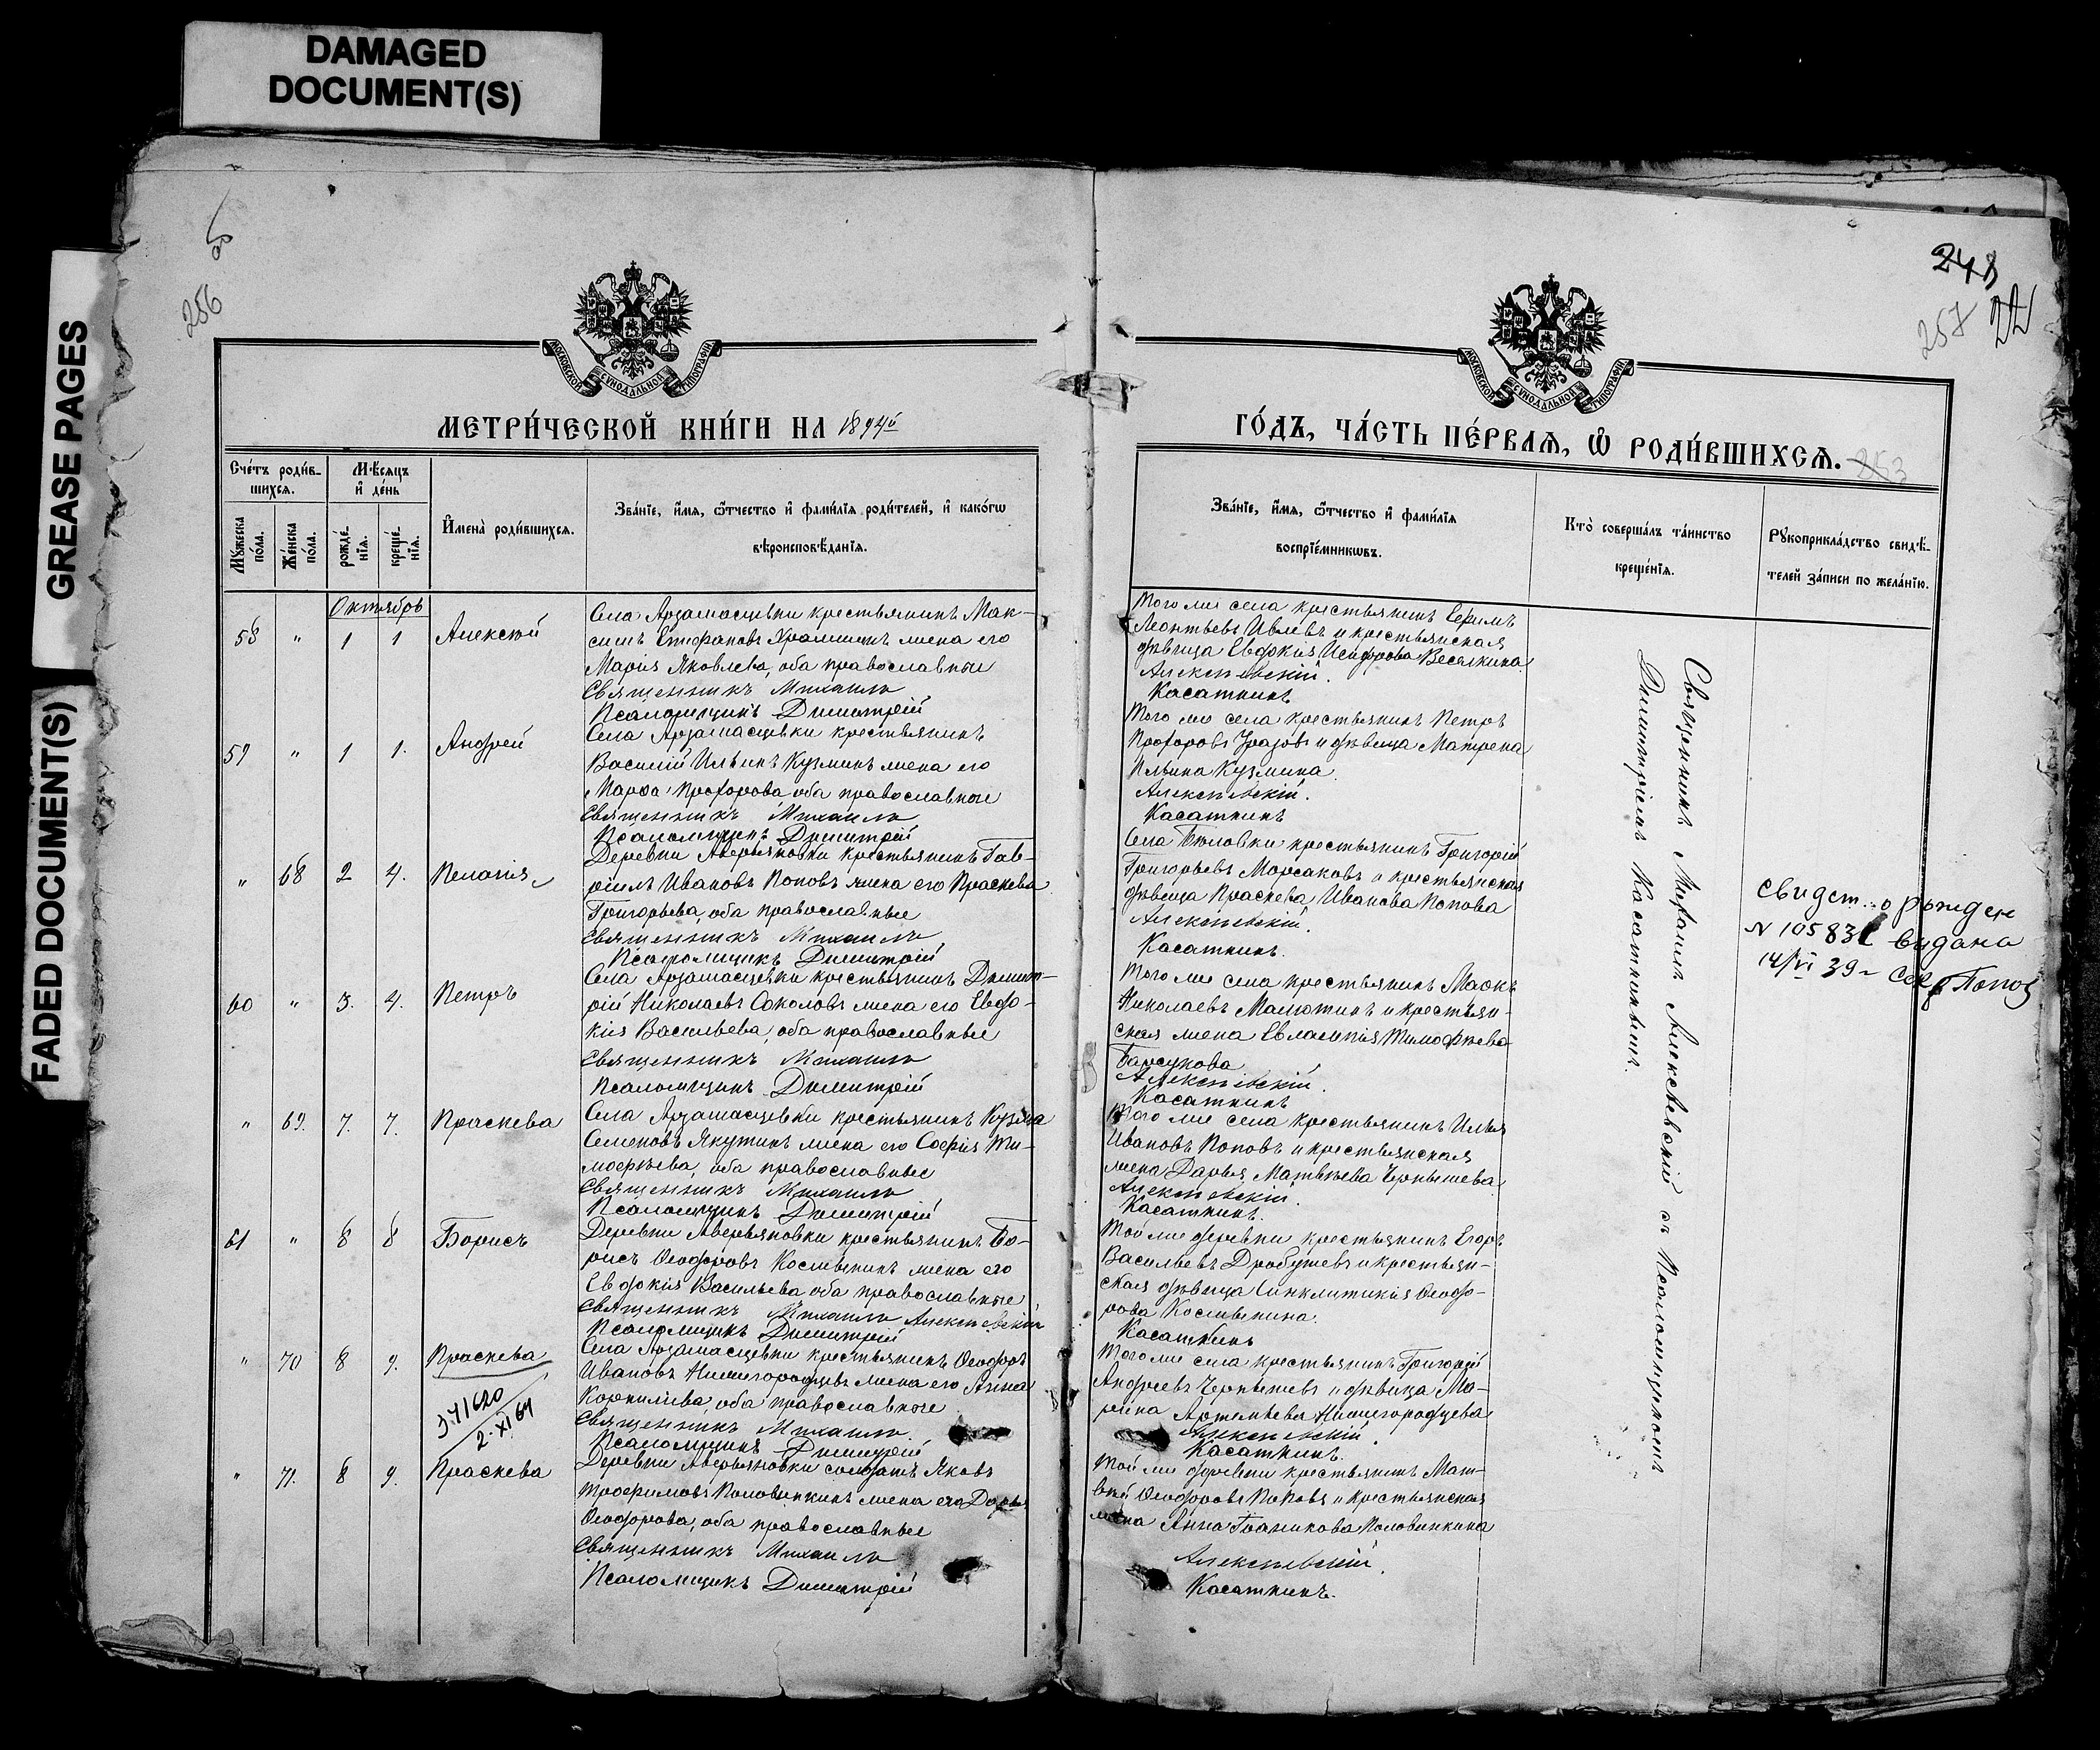 DAMAGED
DOCUMENT(S)
GREASE PAGES
FADED DOCUMENT(S)
256
248
257
22
МОСКОВСКОЙ СУНОДАЛЬНОЙ ТИПОГРАФІИ
МОСКОВСКОЙ СУНОДАЛЬНОЙ ТИПОГРАФІИ
МЕТРИ́ЧЕСКОЙ КНИ́ГИ НА 1894й
ГО́ДЪ, ЧА́СТЬ ПЕ́РВАЯ, Ѡ РОДИ́ВШИХСЯ.
253
Сче́тъ роди́в-
шихся.
Мꙋжеска
по́ла.
Же́нска
по́ла.
Мѣ́сяцъ
и҆ де́нь
рожде́-
нїя.
креще́-
нїя.
И҆мена̀ роди́вшихся.
Зва́нїе, и҆́мя, ѻ҆́тчество и҆ фами́лїя роди́телей, и҆ како́гѡ
вѣроисповѣ́данїя.
Зва́нїе, и҆́мя, ѻ҆́тчество и҆ фами́лїя
воспрїе́мникѡвъ.
Кто̀ соверша́лъ та́инство
креще́нїя.
Рꙋкоприкла́дство свидѣ́-
телей за́писи по жела́нїю.
Октябрь
58 " 1 1 Алексѣй
Села Арзамасцевки крестьянинъ Мак-
симъ Епифановъ жена его
Марія Яковлева, оба православные
Священникъ Михаилъ
Псаломщикъ Димитрій
Того же села крестьянинъ Ефимъ
Леонтьевъ Ивлевъ и крестьянская
дѣвица Евдокія Исидорова Веселкина
Алексѣевскій.
Касаткинъ
59 " 1 1. Андрей
Села Арзамасцевки крестьянинъ
Василій Ильинъ Кузминъ жена его
Марѳа Прохорова, оба православные
Священникъ Михаилъ
Псаломщикъ Димитрій
Того же села крестьянинъ Петръ
Прохоровъ и дѣвица Матрена
Ильина Кузмина.
Алексѣевскій.
Касаткинъ
" 68 2 4. Пелагія
Деревни Аверьяновки крестьянинъ Гав-
ріилъ Ивановъ Поповъ жена его Праскева
Григорьева, оба православные
Священникъ Михаилъ
Псаломщикъ Димитрій
Села крестьянинъ Григорій
Григорьевъ Морсаковъ и крестьянская
дѣвица Праскева Иванова Попова
Алексѣевскій.
Касаткинъ.
60 " 3. 4. Петръ
Села Арзамасцевки крестьянинъ Димит-
рій Николаевъ Соколовъ жена его Евдо-
кія Васильева, оба православные
Священникъ Михаилъ
Псаломщикъ Димитрій
Того же села крестьянинъ
Николаевъ Малютинъ и крестьян-
ская жена Евлампія Тимофѣева
Барсукова
Алексѣевскій.
Касаткинъ
" 69. 7. 7. Праскева
Села Арзамасцевки крестьянинъ Кузьма
Семеновъ Якутинъ жена его Софія Ти-
мофѣева, оба православные
Священникъ Михаилъ
Псаломщикъ Димитрій
Того же села крестьянинъ Илья
Ивановъ Поповъ и крестьянская
жена Дарья Матвѣева Чернышева.
Алексѣевскій.
Касаткинъ.
61 " 8 8 Борисъ
Деревни Аверьяновки крестьянинъ Бо-
рисъ Ѳеодоровъ жена его
Евдокія Васильева, оба православные
Священникъ Михаилъ Алексѣевскій
Псаломщикъ Димитрій
Той же деревни крестьянинъ Егоръ
Васильевъ Дробушевъ и крестьян-
ская дѣвица Синклитикія Ѳеодо-
рова
Касаткинъ
" 70 8 9. Праскева
371620
2.XI 64
Села Арзамасцевки крестьянинъ Ѳеодоръ
Ивановъ Нижегородцевъ жена его Анна
Корнилѣва, оба православные
Священникъ Михаилъ
Псаломщикъ Димитрій
Того же села крестьянинъ Григорій
Андреевъ Чернышевъ и дѣвица Ма-
рина Артемьева Нижегородцева
Алексѣевскій.
Касаткинъ.
" 71. 8 9. Праскева
Деревни Аверьяновки солдатъ Яковъ
Трофимовъ Половинкинъ жена его Дарья
Ѳеодорова, оба православные
Священникъ Михаилъ
Псаломщикъ Димитрій
Той же деревни крестьянинъ Мат-
вѣй Ѳеодоровъ Поповъ и крестьянская
жена Анна Половинкина
Алексѣевскій.
Касаткинъ.
Священникъ Михаилъ Алексѣевскій съ Псаломщикомъ
Димитріемъ Касаткинымъ.
Свидет. о рожден
N 105831 видана
14/VI 39 г Сек Попов